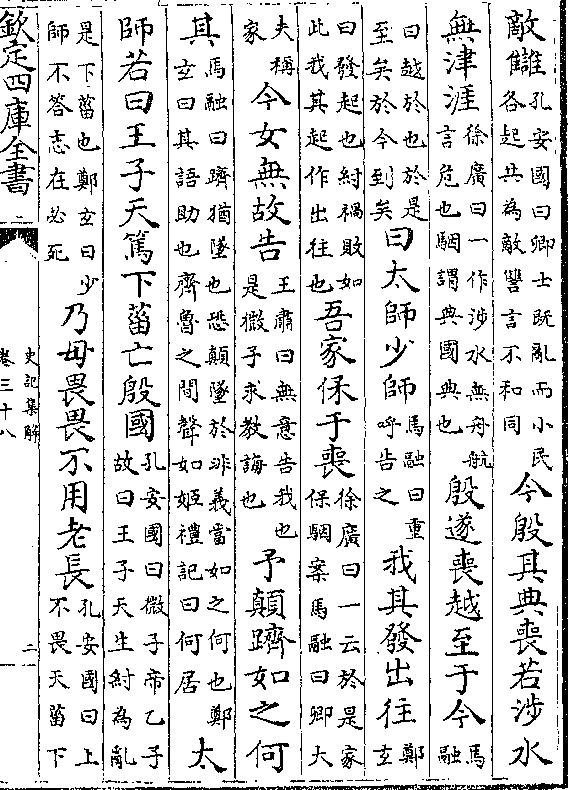 敵讎孔安國曰卿士既亂而小民各起共為敵讐言不和同今殷其典喪若涉水
無津涯徐廣曰一作涉水無舟航言危也駰謂典國典也殷遂喪越至于今馬融
曰越於也於是至矣於今到矣曰太師少師馬融曰重呼告之我其發出往鄭玄
曰發起也紂禍敗如此我其起作出往也吾家保于喪徐廣曰一云於是家保駰案馬融曰卿大
夫稱家今女無故告王肅曰無意告我也是微子求教誨也予顛躋如之何
其馬融曰躋猶墜也恐顛墜於非義當如之何也鄭玄曰其語助也齊魯之間聲如姬禮記曰何居太
師若曰王子天篤下菑亡殷國孔安國曰微子帝乙子故曰王子天生紂為亂
是下菑也鄭玄曰少師不答志在必死乃毋畏畏不用老長孔安國曰上不畏天菑下
欽定四庫全書
史記集解
卷三十八
二